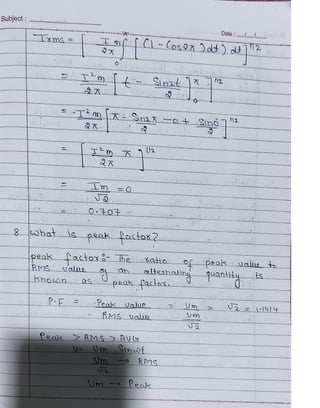 Subject :
Date : / /
Irms = [ I²m / 2π ∫₀^π [ (1 - Cos2π) dt ] dt ]^1/2
= I²m / 2π [ t - Sin2t / 2 ]₀^π ]^1/2
= I²m / 2π [ π - Sin2π / 2 - 0 + Sin0 / 2 ]^1/2
= [ I²m / 2π π ]^1/2
= Im / √2 = 0
= 0.707
8. what is peak factor?
peak factor :- The ratio of peak value to
RMS value of an alternating quantity is
known as peak factor.
P.F = Peak value / RMS value = Um / Um/√2 = √2 = 1.1414
Peak > RMS > AVIN
U = Um Sinωt
Um / √2 → RMS
Um → Peak